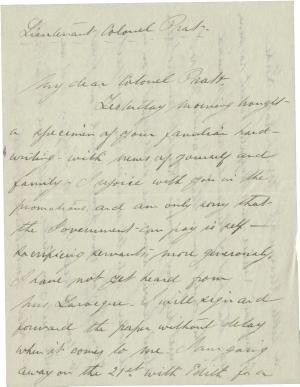 Lieutenant Colonel Pratt-
My dear Colonel Pratt.
Yesterday morning brought-
a specimen of your familiar hand-
writing- with news of yourself and
family- I rejoice with you in the
promotion, and am only sorry that-
the Government- can pay its self-
sacrificing servants, more generously.
I have not yet heard from
Mrs.
I will sign and
forward the paper without delay
when it comes to me. I am going
away on the 21st with Edith for a